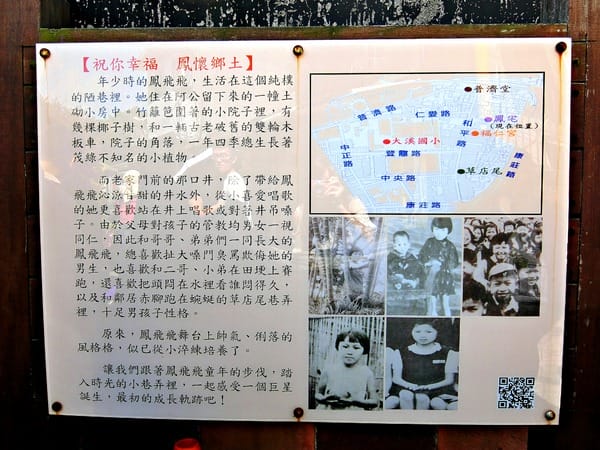 【祝你幸福　鳳懷鄉土】
年少時的鳳飛飛，生活在這個純樸
的陋巷裡。她住在阿公留下來的一幢土
角小房中。竹籬笆圍著的小院子裡，有
幾棵椰子樹，和一輛古老破舊的雙輪木
板車，院子的角落，一年四季總生長著
茂綠不知名的小植物。
而老家門前的那口井，除了帶給鳳
飛飛沁涼甘甜的井水外，從小喜愛唱歌
的她更喜歡站在井上唱歌或對著井吊嗓
子。由於父母對孩子的管教均男女一視
同仁，因此和哥哥，弟弟們一同長大的
鳳飛飛，總喜歡扯大嗓門臭罵欺侮她的
男生，也喜歡和二哥，小弟在田埂上賽
跑，還喜歡把頭悶在水裡看誰悶得久，
以及和鄰居赤腳跑在蜿蜒的草店尾巷弄
裡，十足男孩子性格。
原來，鳳飛飛舞台上帥氣、俐落的
風格格，似已從小淬練培養了。
讓我們跟著鳳飛飛童年的步伐，踏
入時光的小巷弄裡，一起感受一個巨星
誕生，最初的成長軌跡吧！
普濟堂
普濟路
仁愛路
和平路
鳳宅
(現在位置)
福仁宮
大溪國小
登龍路
中正路
康莊路
草店尾
中央路
康莊路